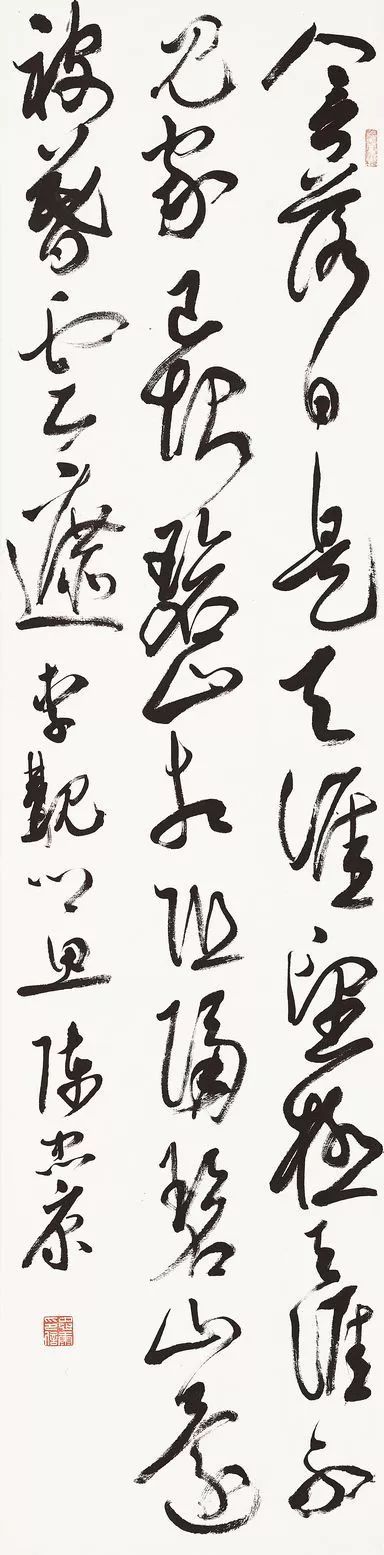 人言落日是天涯望極天涯不
見家已恨碧山相阻隔碧山還
被暮雲遮 李覯鄉思 陳忠康